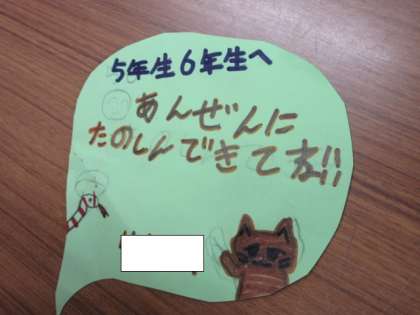 5年生6年生へ
あんぜんに
たのしんできてね!!